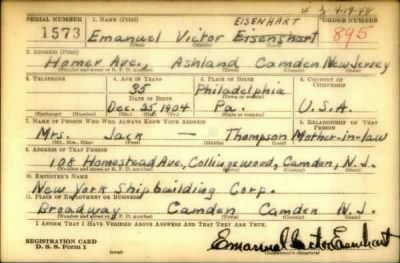 4-19-48
EISENHART
SERIAL NUMBER 1. NAME (Print) ORDER NUMBER
1573 Emanuel Victor Eisenghart 895
(First) (Middle) (Last)
2. ADDRESS (Print)
Homer Ave., Ashland Camden New Jersey
(Number and street or R. F. D. number) (Town) (County) (State)
3. TELEPHONE 4. AGE IN YEARS 5. PLACE OF BIRTH 6. COUNTRY OF CITIZENSHIP
35 Philadelphia
DATE OF BIRTH (Town or county)
Dec. 25, 1904 Pa. U.S.A.
(Exchange) (Number) (Mo.) (Day) (Yr.) (State or country)
7. NAME OF PERSON WHO WILL ALWAYS KNOW YOUR ADDRESS 8. RELATIONSHIP OF THAT PERSON
Mrs. Jack — Thompson Mother-in-law
(Mr., Mrs., Miss) (First) (Middle) (Last)
9. ADDRESS OF THAT PERSON
108 Homestead Ave., Collingswood, Camden, N.J.
(Number and street or R. F. D. number) (Town) (County) (State)
10. EMPLOYER'S NAME
New York Shipbuilding Corp.
11. PLACE OF EMPLOYMENT OR BUSINESS
Broadway Camden Camden N.J.
(Number and street or R. F. D. number) (Town) (County) (State)
I AFFIRM THAT I HAVE VERIFIED ABOVE ANSWERS AND THAT THEY ARE TRUE.
REGISTRATION CARD
D. S. S. Form 1
Emanuel Victor Eisenhart
(Registrant's signature)